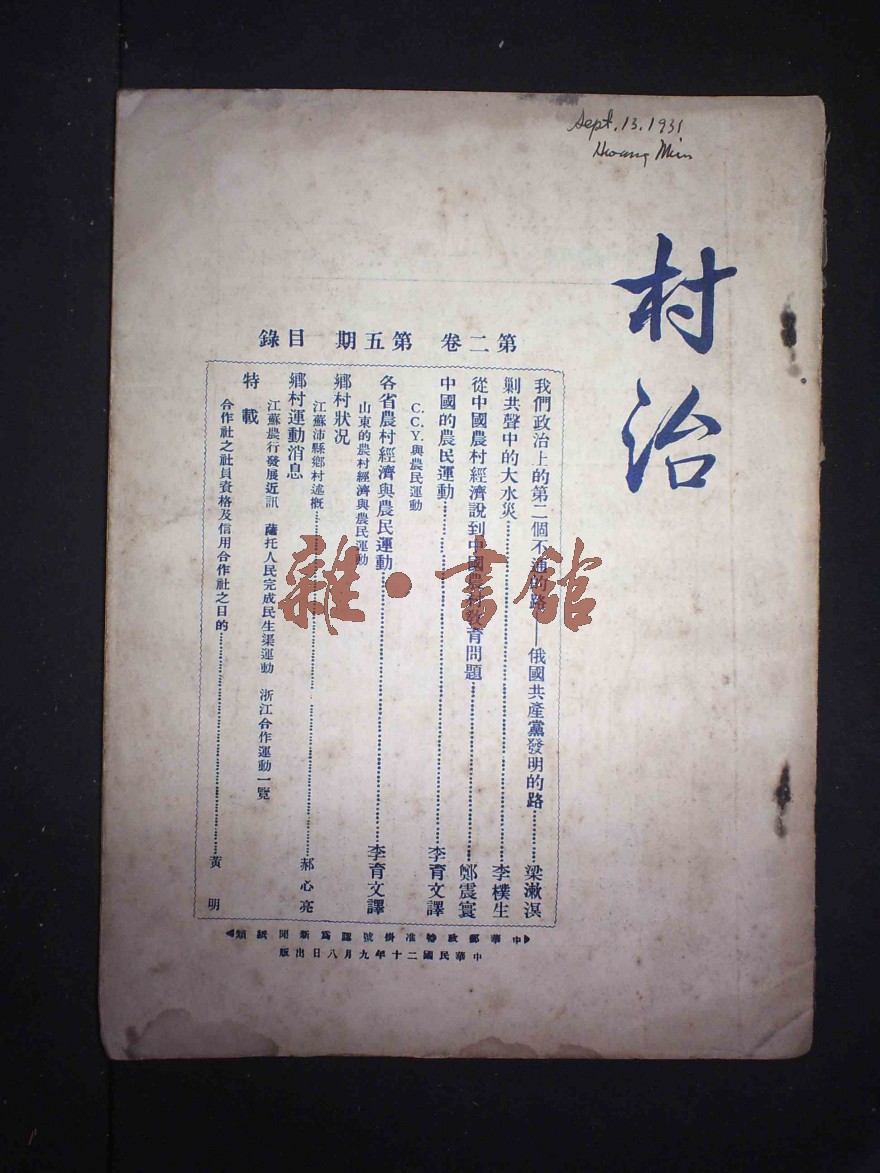 Sept. 13. 1931
Hwang Min
村治
第二卷 第五期 目錄
我們政治上的第二個不通的路——俄國共產黨發明的路…………梁漱溟
剿共聲中的大水災…………李樸生
從中國農村經濟說到中國農村教育問題…………鄭震寰
中國的農民運動…………李育文譯
C.C.Y.與農民運動
各省農村經濟與農民運動…………李育文譯
山東的農村經濟與農民運動
鄉村狀況
江蘇沛縣鄉村述概…………郝心亮
鄉村運動消息
江蘇農行發展近訊 薩托人民完成民生渠運動 浙江合作運動一覽
特載
合作社之社員資格及信用合作社之目的…………黃明
中華郵政特准掛號認為新聞紙類
中華民國二十年九月八日出版
雜·書館